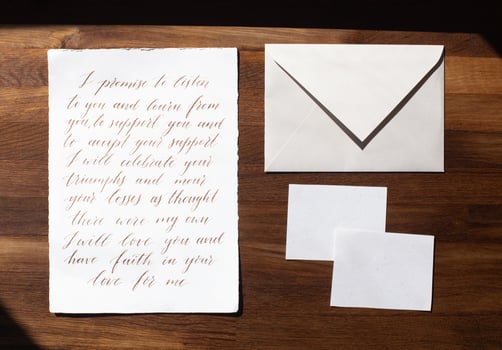 I promise to listen
to you and learn from
you, to support you and
to accept your support
I will celebrate your
triumphs and mour
your losses as thought
there were my own
I will love you and
have faith in your
love for me